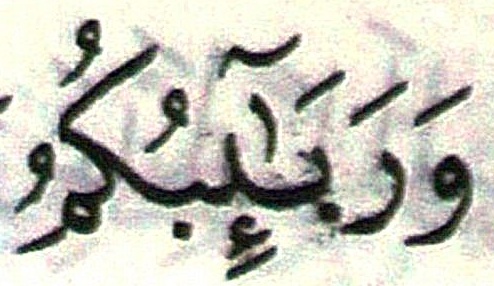 وَرَبَآئِبُكُمُ